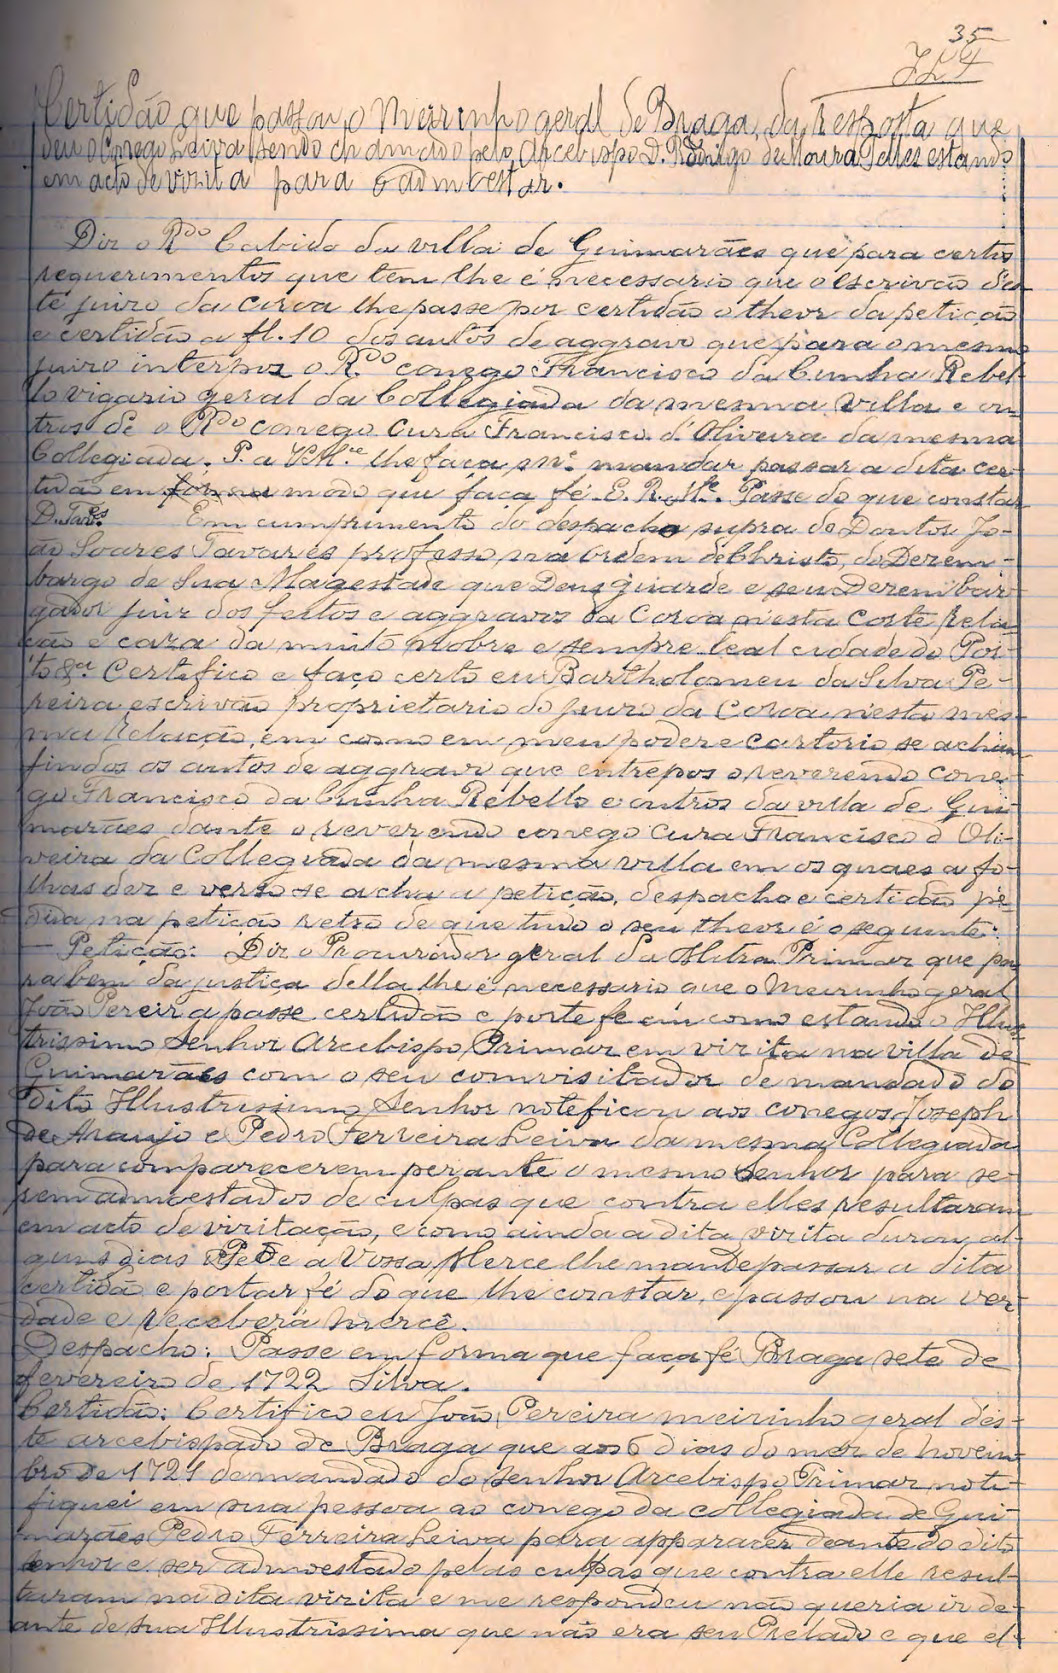 35
Certidão que passou o Meirinho geral de Braga, da resposta que
deu o Conego Leiva sendo chamado pelo Arcebispo D. Rodrigo de Moura Telles estando
em acto de vizita para o admoestar.
Diz o Rdo Cabido da villa de Guimarães que para certos
requerimentos que tem lhe é necessario que o escrivão des-
te juizo da coroa lhe passe por certidão o theor da petição
e certidão a fl. 10 dos autos de aggravo que para o mesmo
juizo interpoz o Rdo conego Francisco da Cunha Rebel-
lo vigario geral da Collegiada da mesma villa e ou-
tros de o Rdo conego Cura Francisco d'Oliveira da mesma
Collegiada. P. a V Mce lhe faça mce mandar passar a dita cer-
tidão em modo que faça fé. E. R. Mce. Passe do que constar
D. Tavres Em cumprimento do despacho supra do Doutor Jo-
ão Soares Tavares professo na ordem de Christo, do Dezem-
bargo de Sua Magestade que Deus guarde e seu Dezembar-
gador juiz dos feitos e aggravos da Coroa n'esta Corte Rela-
ção e caza da muito nobre e sempre leal cidade do Por-
to &a. Certifico e faço certo eu Bartholomeu da Silva Pe-
reira escrivão proprietario do Juizo da Coroa n'esta mes-
ma Relação, em como em meu poder e cartorio se acham
findos os autos de aggravo que entrepos o reverendo cone-
go Francisco da Cunha Rebello e outros da villa de Gui-
marães dante o reverendo conego Cura Francisco d Oli-
veira da Collegiada da mesma villa em os quaes a fo-
lhas dez e verso se acha a petição, despacho e certidão pe-
dida na petição retro de que tudo o seu theor é o seguinte:
— Petição: Diz o Procurador geral da Mitra Primaz que pa-
ra bem da justiça della lhe é necessario que o Meirinho geral
João Pereira passe certidão e porte fe em como estando o Illus-
trissimo Senhor Arcebispo Primaz em vizita na villa de
Guimarães com o seu comvisitador de mandado do
dito Illustrissimo Senhor noteficou aos conegos Joseph
de Araujo e Pedro Ferreira Leiva da mesma Collegiada
para comparecerem perante o mesmo Senhor para se-
rem admoestados de culpas que contra elles resultaram
em acto de vizitação, e como ainda a dita vizita durou al-
guns dias Pede a Vossa Merce lhe mande passar a dita
certidão e portar fé do que lhe constar, e passou na ver-
dade e receberá mercê.
Despacho: Passe em forma que faça fé Braga sete de
fevereiro de 1722 Silva.
Certidão: Certifico eu João Pereira meirinho geral des-
te arcebispado de Braga que aos 6 dias do mez de novem-
bro de 1721 de mandado do Senhor Arcebispo Primaz noti-
fiquei em sua pessoa ao conego da collegiada de Gui-
marães Pedro Ferreira Leiva para apparacer deante do dito
Senhor e ser admoestado pelas culpas que contra elle resul-
taram na dita vizita e me respondeu não queria ir de-
ante de sua Illustrissima que não era seu Prelado e que el-